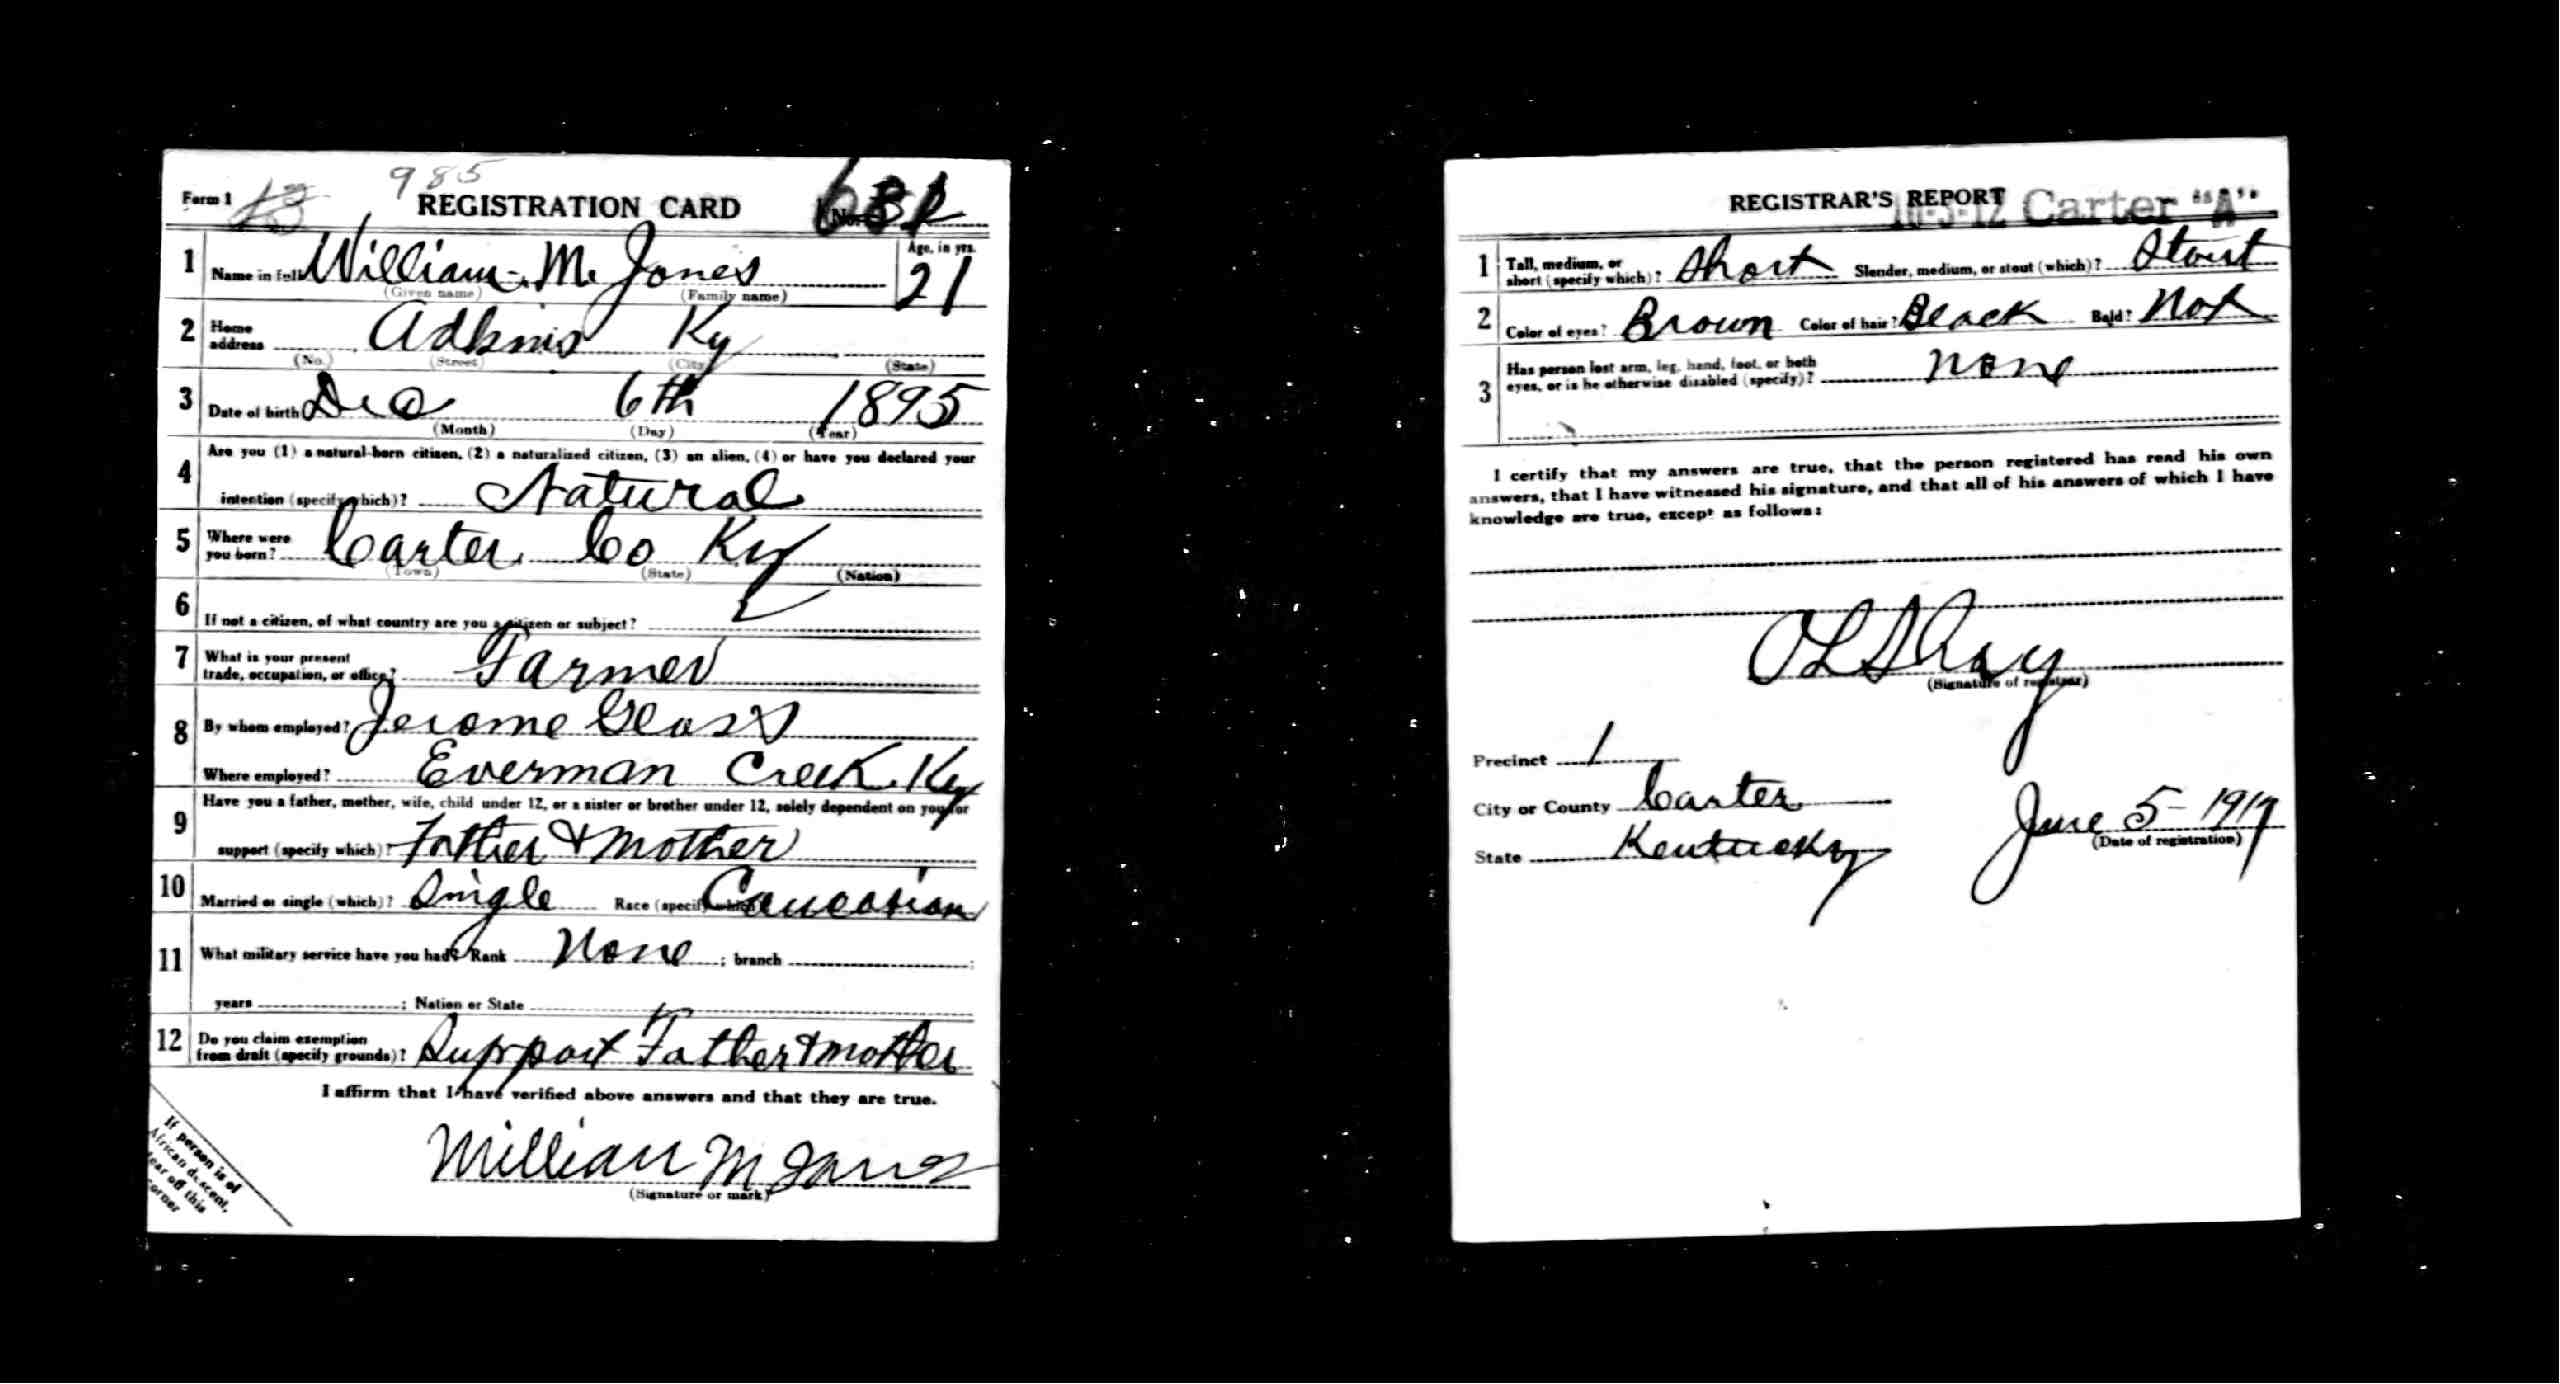 985
Form 1 REGISTRATION CARD No.
1 Name in full William M. Jones Age, in yrs. 21
(Given name) (Family name)
2 Home address Adkins Ky
(No.) (Street) (City) (State)
3 Date of birth Dec 6th 1895
(Month) (Day) (Year)
4 Are you (1) a natural-born citizen, (2) a naturalized citizen, (3) an alien, (4) or have you declared your
intention (specify which)? Natural
5 Where were you born? Carter Co Ky
(Town) (State) (Nation)
6 If not a citizen, of what country are you a citizen or subject?
7 What is your present trade, occupation, or office? Farmer
8 By whom employed? Jerome Glass
Where employed? Everman Creek Ky
9 Have you a father, mother, wife, child under 12, or a sister or brother under 12, solely dependent on you for
support (specify which)? Father & Mother
10 Married or single (which)? Single Race (specify which)? Caucasian
11 What military service have you had? Rank None ; branch ;
years ; Nation or State
12 Do you claim exemption from draft (specify grounds)? Support Father & Mother
I affirm that I have verified above answers and that they are true.
William M Jones
(Signature or mark)
If person is of
African descent,
tear off this
corner
REGISTRAR'S REPORT Carter "A"
1 Tall, medium, or short (specify which)? Short Slender, medium, or stout (which)? Stout
2 Color of eyes? Brown Color of hair? Black Bald? Not
3 Has person lost arm, leg, hand, foot, or both
eyes, or is he otherwise disabled (specify)? None
I certify that my answers are true, that the person registered has read his own
answers, that I have witnessed his signature, and that all of his answers of which I have
knowledge are true, except as follows:
(Signature of registrar)
Precinct 1
City or County Carter
State Kentucky
June 5 - 1917
(Date of registration)